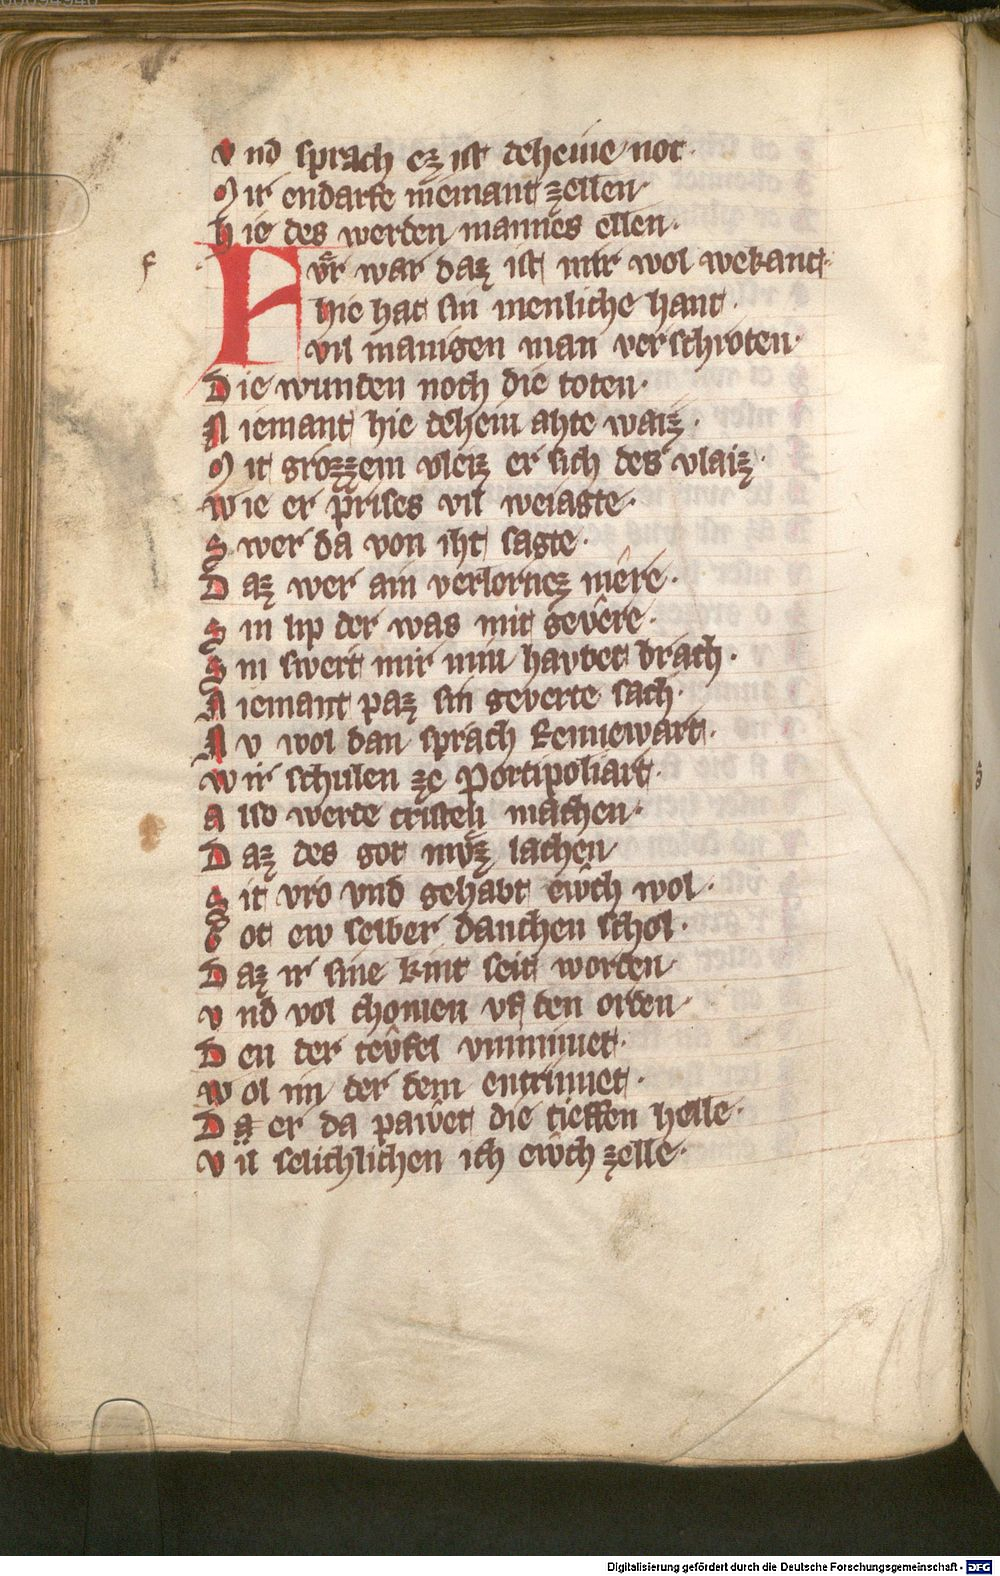 vnd sprach ez ist deheine not·
Mir endarfe niemant zellen·
hie des werden mannes ellen·
f
Fv̊r war daz ist mir wol wekant·
hie hat sin menliche hant·
vil manigen man verschroten·
Die wunden noch die toten·
Niemant hie dehein ahte waiz·
Mit grozzem vleiz er sich des vlaiz·
wie er prises vil weiagte·
Swer da von iht sagte·
Daz wer ain verlornez mêre·
Sin lip der was mit gevêre·
Sin swert mir min havbet brach·
Niemant paz sin geverte sach·
Nv wol dan sprach Rennewart·
wir schulen ze Portipoliart·
also werde cristen machen·
Daz des got mv̊z lachen
Sit vro vnd gehabt ewch wol·
Got ew selber danchen schol·
Daz ir sine kint seit worden
vnd vol chomen vf den orden·
Den der tev̂fel vnminnet·
wol im der dem entrinnet·
Da er da pawet die tieffen helle·
vil selichlichen ich ewch zelle·
Digitalisierung gefördert durch die Deutsche Forschungsgemeinschaft - DFG